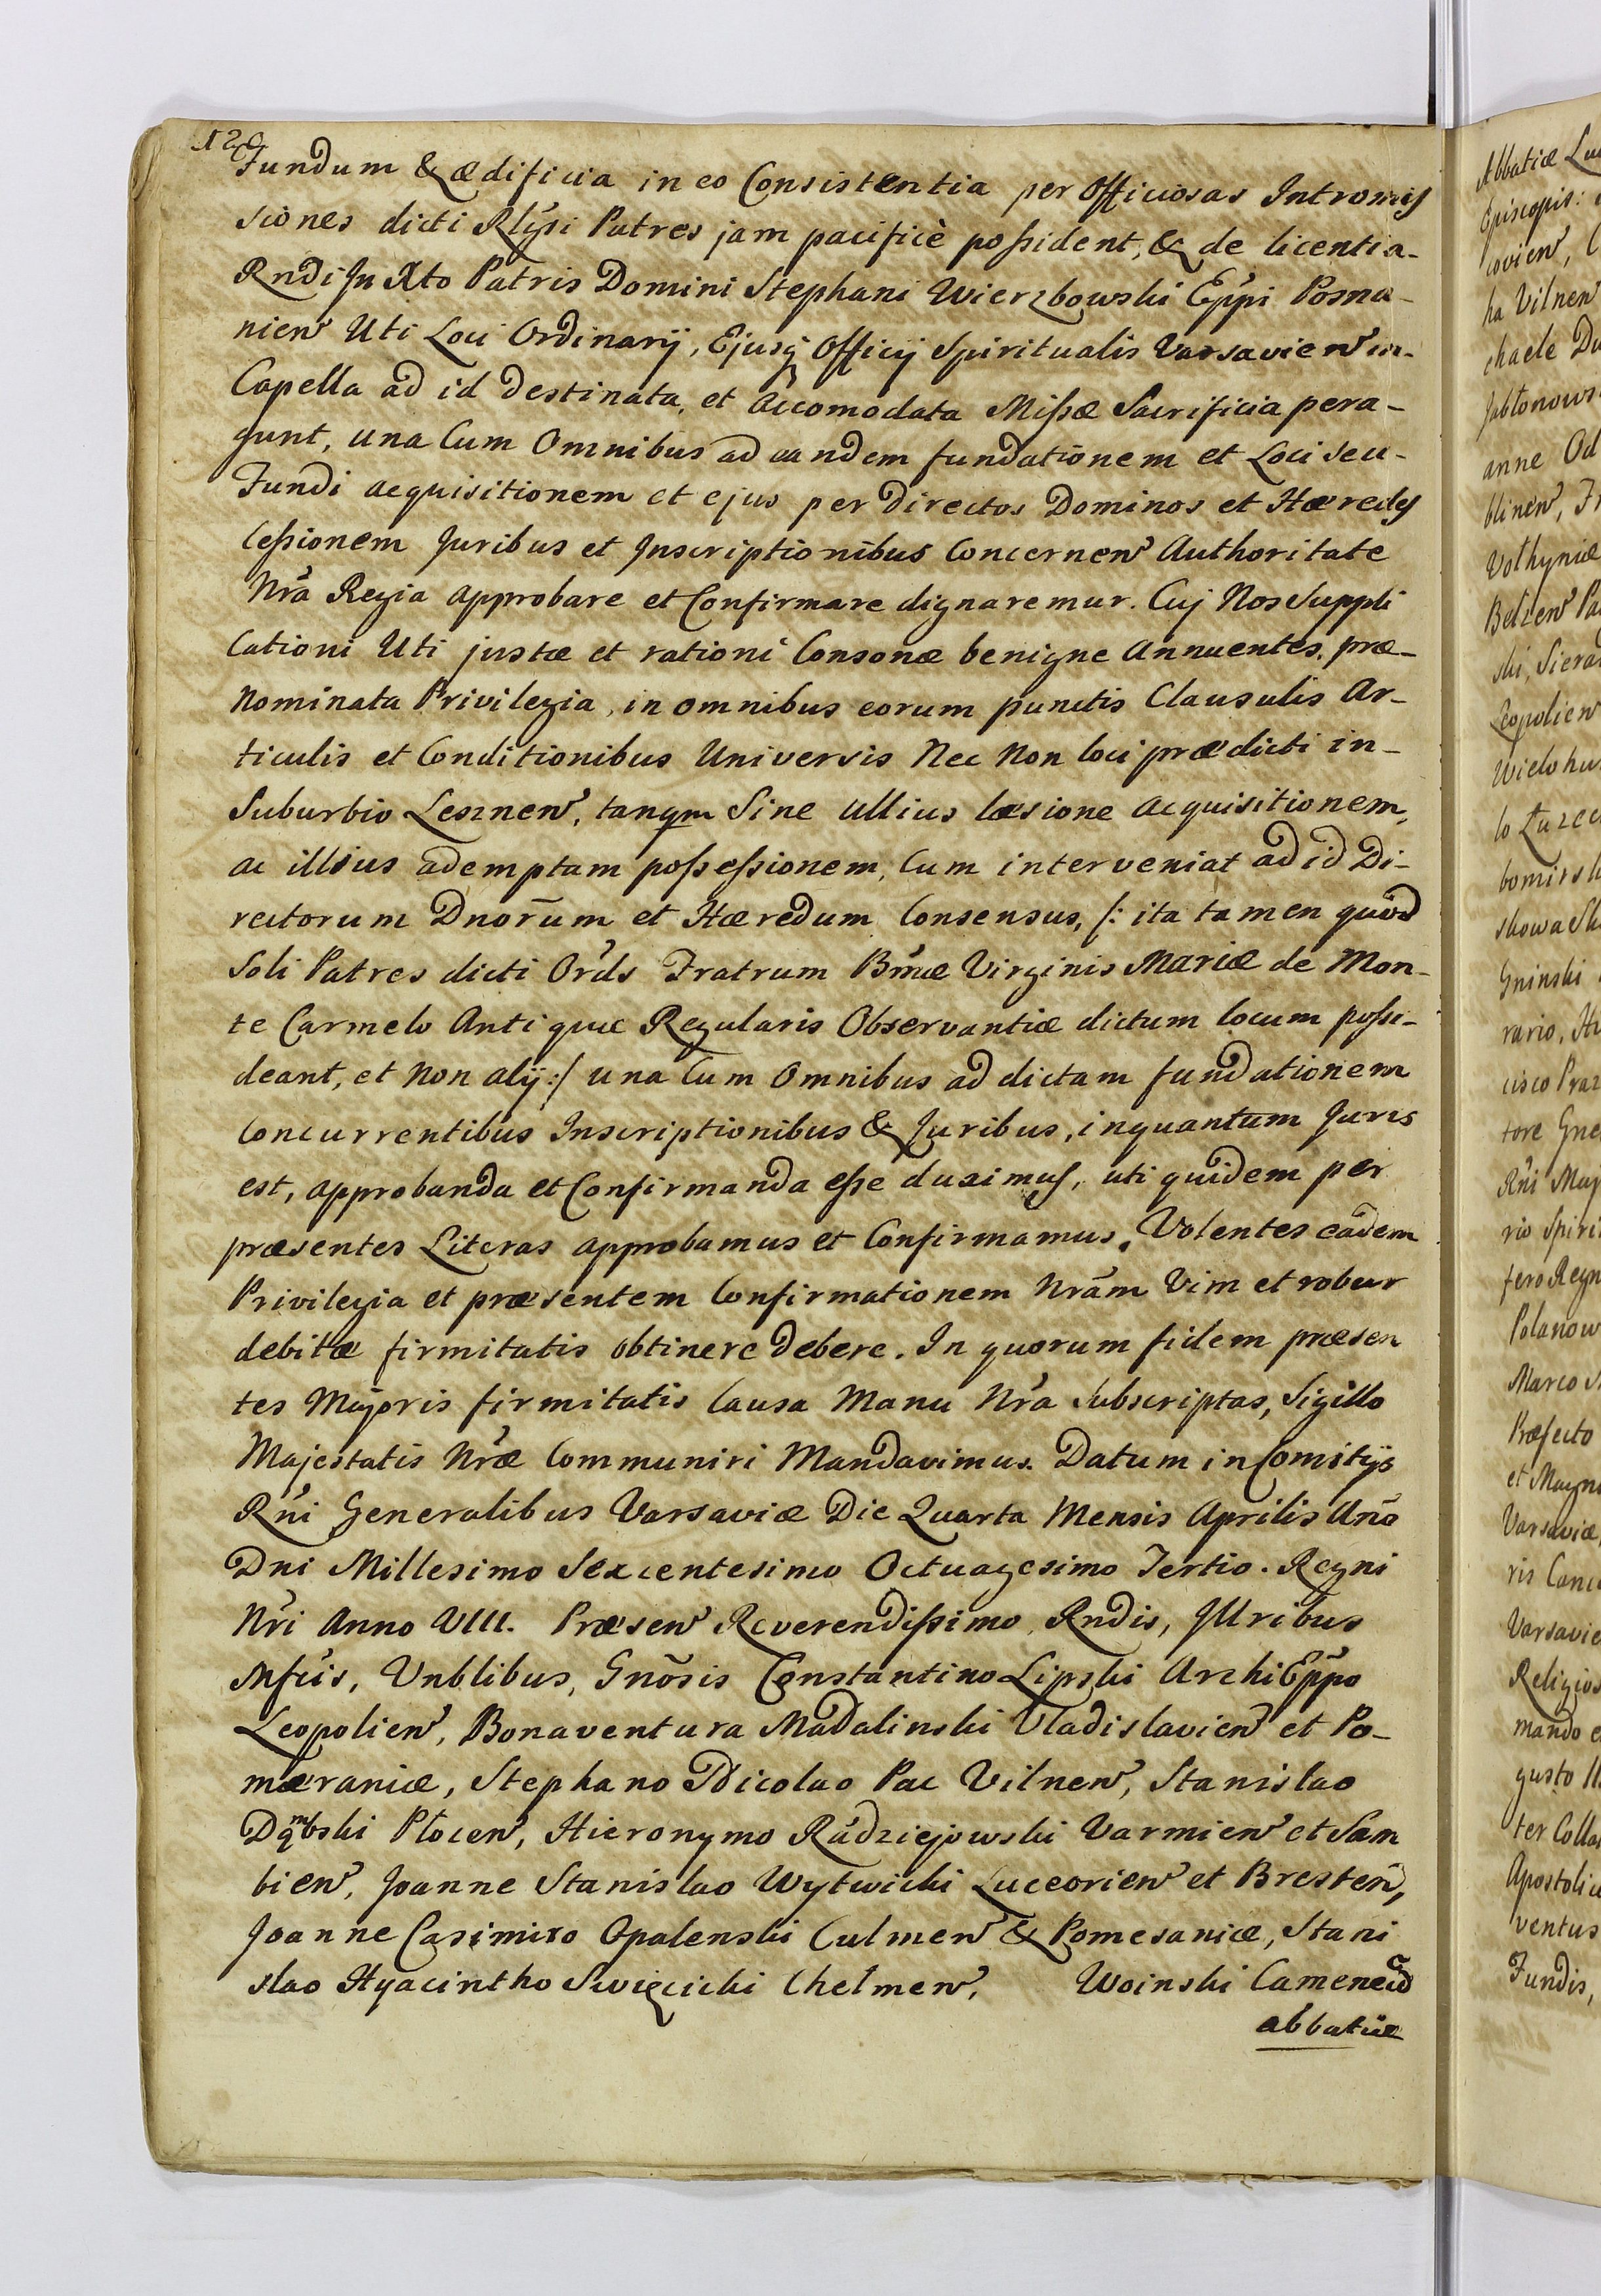 120
Fundum & ædificia in eo Consistentia per Officiosas Intromis
siones dicti Rlgsi Patres jam pacificè possident, & de licentia
Rndi In Xto Patris Domini Stephani Wierzbowski Eppi Posna-
nien Uti Loci Ordinarij, Ejusq Officij Spiritualis Varsavien in
Capella ad id destinata, et accomodata Missæ Sacrificia pera-
gunt, una Cum Omnibus ad eandem fundationem et Loci seu
Fundi acquisitionem et ejus per Directos Dominos et Hæredes
Cessionem Juribus et Inscriptionibus Concernen Authoritate
Nrã Regia approbare et Confirmare dignaremur. Cuj Nos Suppli
Cationi Uti justæ et rationi Consonæ benigne Annuentes, præ-
nominata Privilegia, in omnibus eorum punctis Clausulis Ar-
ticulis et Conditionibus Universis Nec Non loci prædicti in-
Suburbio Lesznen, tanqm Sine Ullius læsione acquisitionem,
ac illius ademptam possessionem, Cum interveniat ad id Di-
rectorum Dnorum et Hæredum Consensus, /: ita tamen quòd
Soli Patres dicti Ords Fratrum Bmæ Virginis Mariæ de Mon-
te Carmelo Antiquæ Regularis Observantiæ dictum locum possi-
deant, et Non alij :/ una Cum Omnibus ad dictam fundationem
Concurrentibus Inscriptionibus & Juribus, inquantum Juris
est, approbanda et Confirmanda esse duximus, uti quidem per
præsentes Literas approbamus et Confirmamus. Volentes eadem
Privilegia et præsentem Confirmationem Nrãm Vim et robur
debitæ firmitatis obtinere debere. In quorum fidem præsen
tes Majoris firmitatis Causa Manu Nrã Subscriptas, Sigillo
Majestatis Nræ Communiri Mandavimus. Datum in Comitijs
Rni Generalibus Varsaviæ Die Quarta Mensis Aprilis Anõ
Dni Millesimo Sexcentesimo Octuagesimo Tertio. Regni
Nri Anno VIII. Præsen Reverendissimo, Rndis, Illribus
Mfcis, Vnblibus, Gnõsis Constantino Lipski ArchiEppo
Leopolien, Bonaventura Madalinski Vladislavien et Po-
mæraniæ, Stephano Nicolao Pac Vilnen, Stanislao
Dąmbski Płocen, Hieronymo Radziejowski Varmien et Sam
bien, Joanne Stanislao Wytwicki Luceorien et Bresten,
Joanne Casimiro Opalenski Culmen & Pomesaniæ, Stani
slao Hyacintho Swięcicki Chełmen, Woinski Camenecũ
abbatiæ